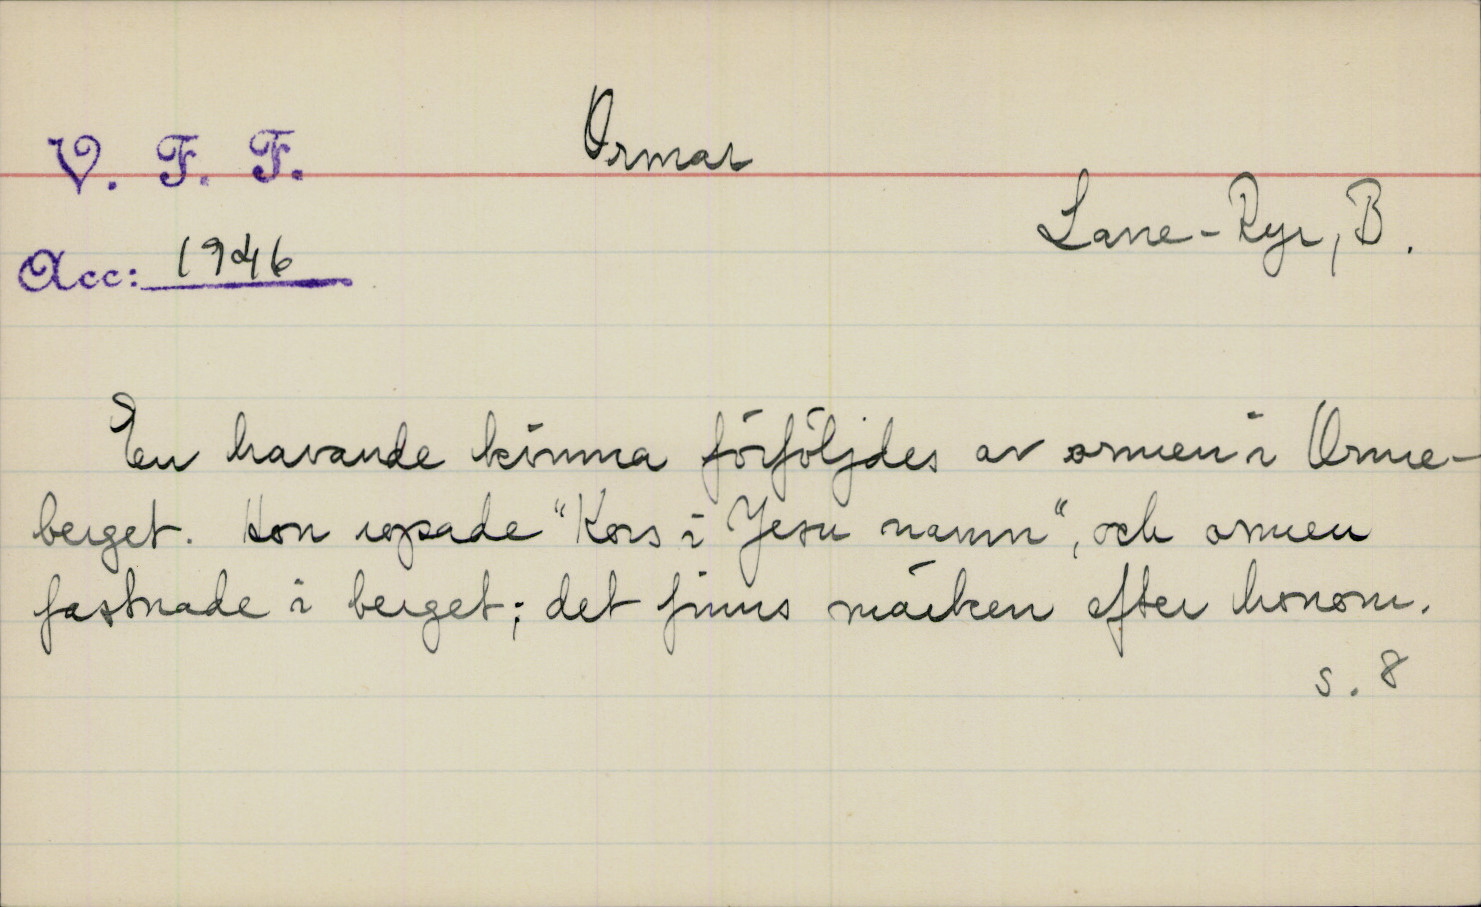 Ormar
V. F. F.
Lane-Ryr, B.
Acc: 1946
En havande kvinna förföljdes av ormen i Orme-
berget. Hon ropade "Kors i Jesu namn", och ormen
fastnade i berget; det finns märken efter honom.
s. 8